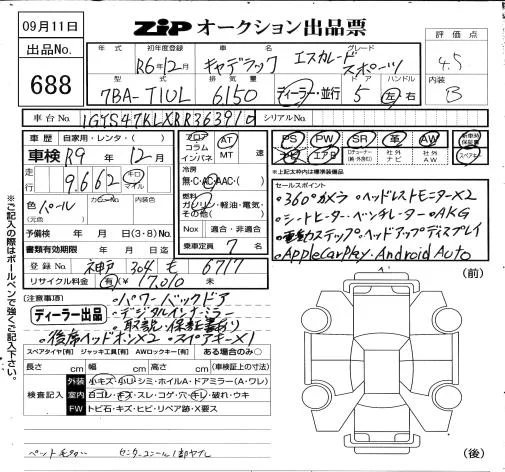 09月11日
ZiP オークション出品票
出品No. 688
年式 初年度登録 車名 グレード
R6年12月 キャデラック エスカレード スポーツ
評価点 4.5
型式 排気量 ドア ハンドル
7BA-T1UL 6150 ディーラー・並行 5 左 右
内装 B
車台No. 1GYS47KLXRR363910 シリアルNo.
車歴 自家用・レンタ・( )
車検 R9年 12月
走行 9,662 キロ マイル
色 パール (元色) カラーNo. 内装色
予備検 年 月 日(3・8)No.
書類有効期限 年 月 日迄
登録No. 神戸 304 も 6717
リサイクル料金 有(¥17,010 未
フロア コラム インパネ AT MT 速
冷房 無・C・AC・AAC・( )
燃料 ガソリン・軽油・電気・その他( )
Nox 適合・非適合
乗車定員 7 名
PS PW SR 革 AW
ナビ エアB 社外ナビ 社外AW
新車時保証書 スペアキー
★上記太枠内は標準装備品
セールスポイント
・360°カメラ ・ヘッドレストモニターX2
・シートヒーター・ベンチレーター ・AKG
・電動ステップ ・ヘッドアップディスプレイ
・AppleCarPlay・Android Auto
(注意事項) ・パワーバックドア
ディーラー出品 ・デジタルインナーミラー
・取説・保証書あり
・後席ヘッドホンX2 ・スペアキーX1
スペアタイヤ[有] ジャッキ工具[有] AWロックキー[有] ある場合のみ○
長さ cm 幅 cm 高さ cm (車検証上の寸法)
検査記入
外装 小キズ・小U・シミ・ホイルA・ドアミラー(A・ワレ)
室内 ヨゴレ・キズ・スレ・コゲ・穴・キレ・破れ・ウキ
FW トビ石・キズ・ヒビ・リペア跡・X要ス
(前)
(後)
※ご記入の際はボールペンで強くご記入下さい。